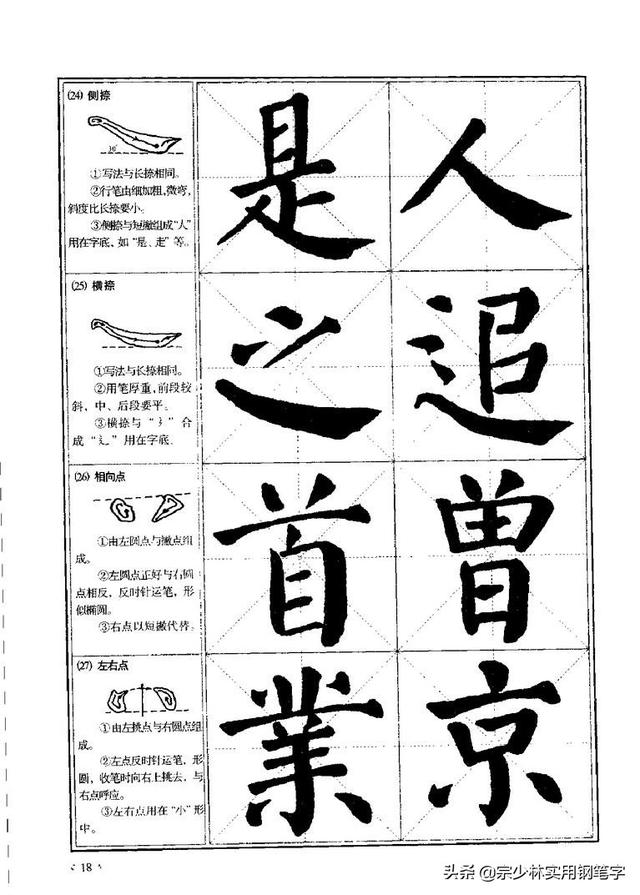 (24) 侧捺
30°
①写法与长捺相同。
②行笔由细加粗,微弯,
斜度比长捺要小。
③侧捺与短撇组成“人”
用在字底, 如“是、走”等。
是人
(25) 横捺
①写法与长捺相同。
②用笔厚重, 前段较
斜, 中、后段要平。
③横捺与“讠”合
成“辶”用在字底。
之追
(26) 相向点
①由左圆点与撇点组
成。
②左圆点正好与右圆
点相反, 反时针运笔, 形
似椭圆。
③右点以短撇代替。
首曾
(27) 左右点
①由左挑点与右圆点组
成。
②左点反时针运笔, 形
圆, 收笔时向右上挑去, 与
右点呼应。
③左右点用在“小”形
中。
業京
18
头条 @宗少林实用钢笔字